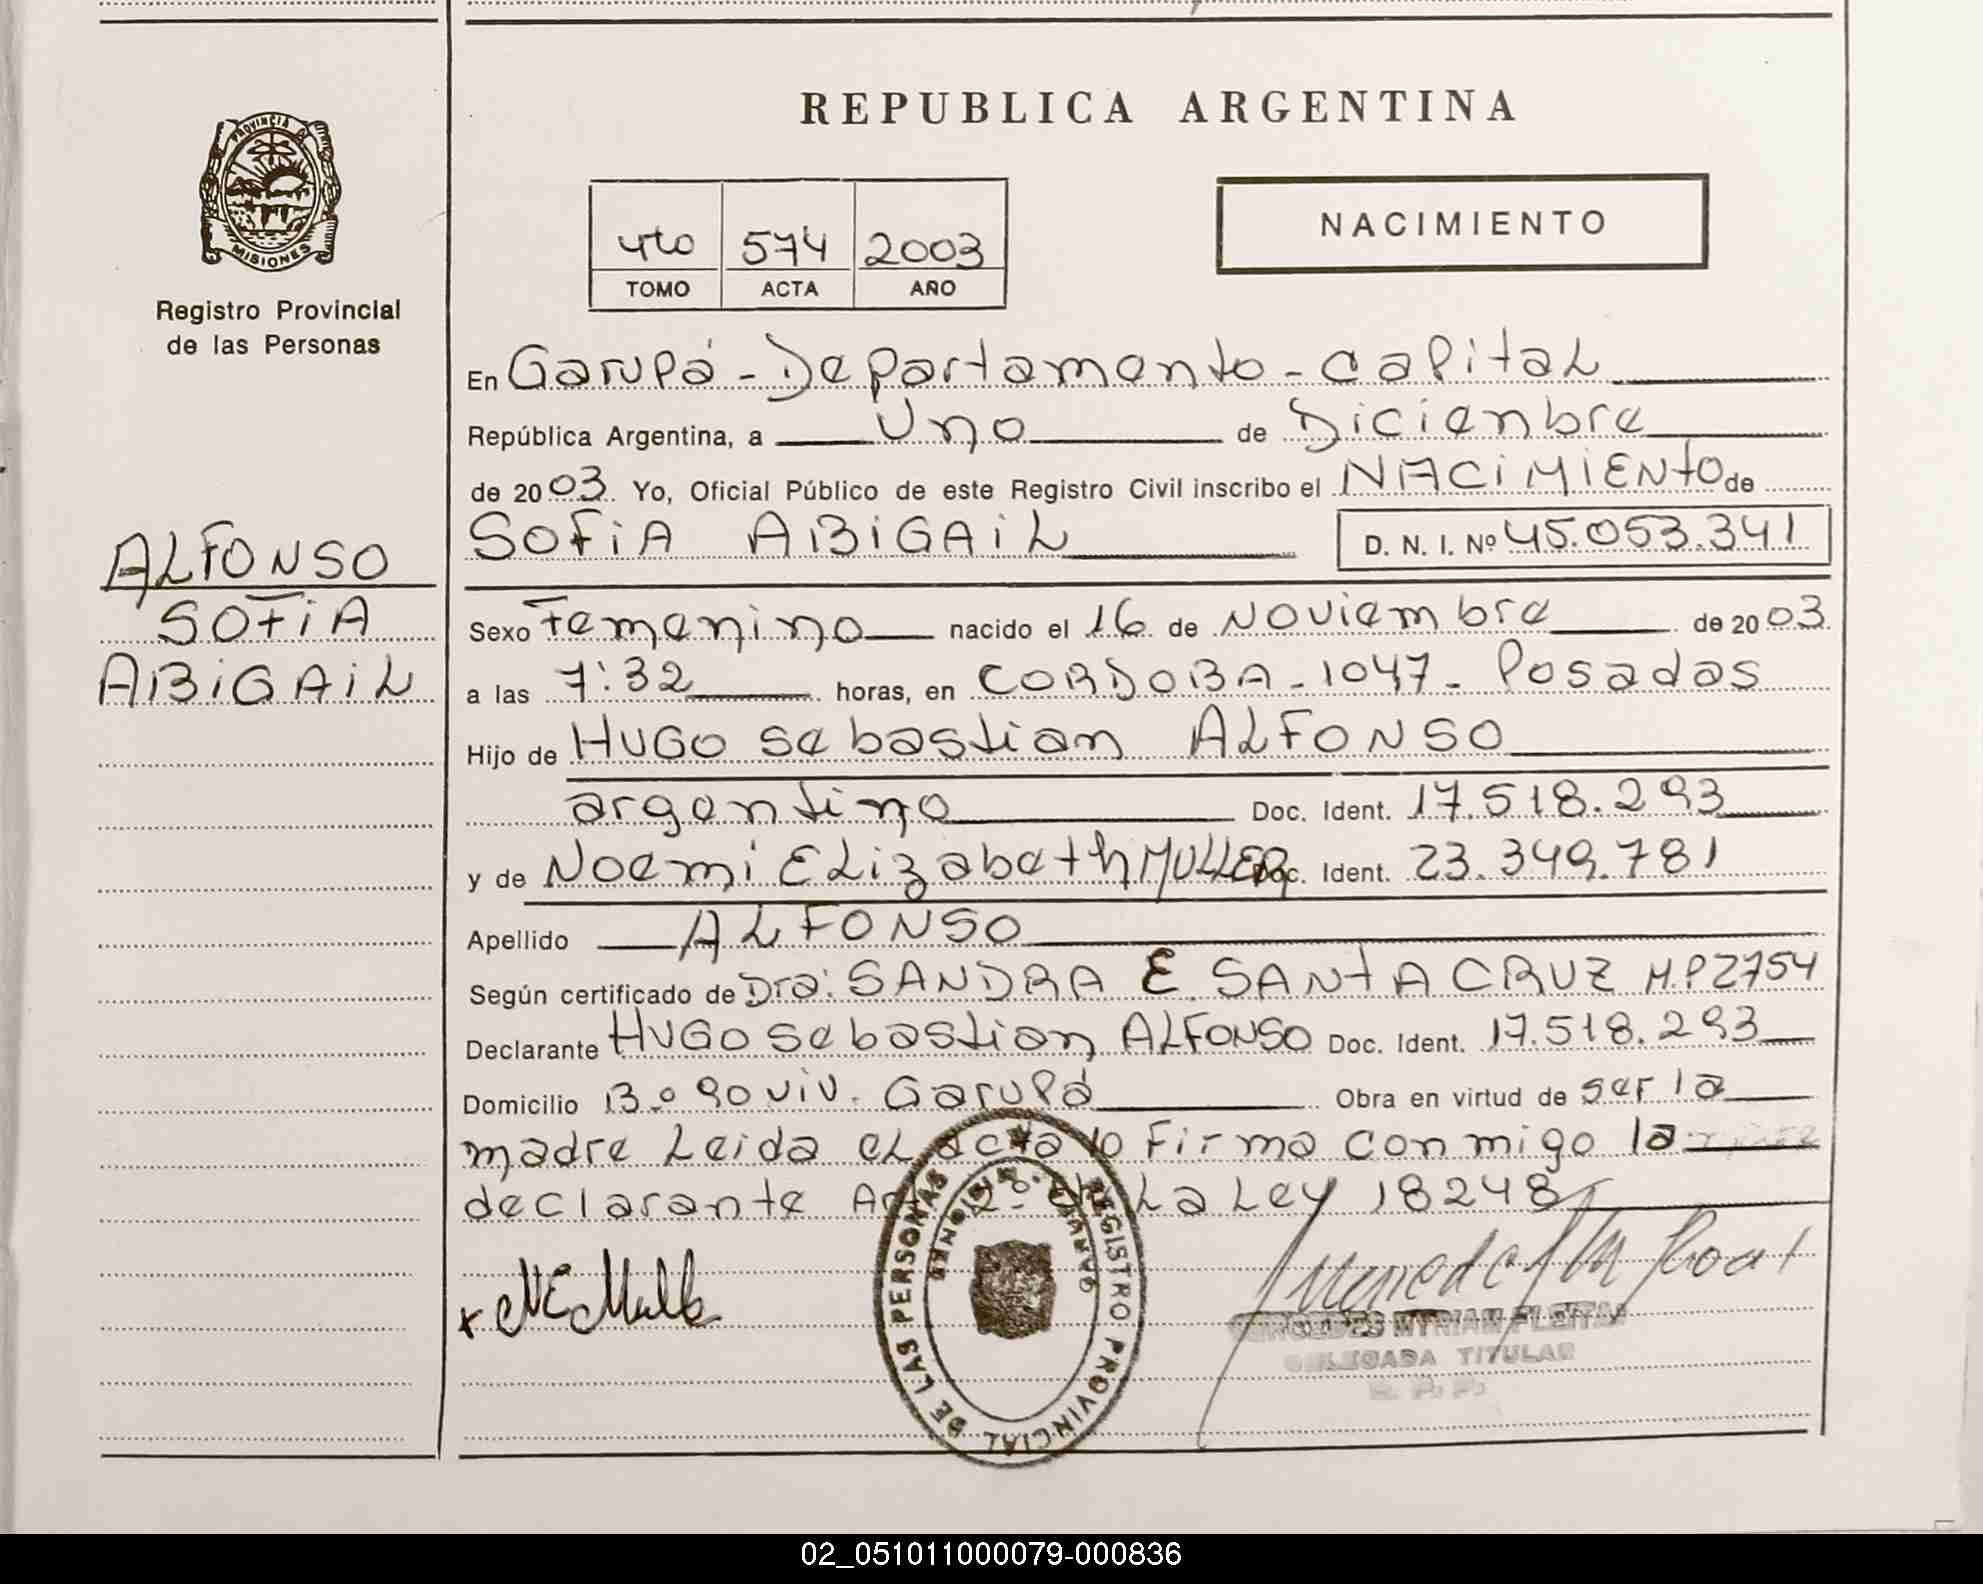 REPUBLICA ARGENTINA
PROVINCIA DE
MISIONES
Registro Provincial
de las Personas
4to 574 2003
TOMO ACTA AÑO
NACIMIENTO
En Garupá - Departamento - Capital
República Argentina, a Uno de Diciembre
de 2003. Yo, Oficial Público de este Registro Civil inscribo el NACIMIENTO de
SOFIA ABIGAIL D. N. I. Nº 45.053.341
ALFONSO
SOFIA
ABIGAIL
Sexo Femenino nacido el 16 de Noviembre de 2003
a las 7:32 horas, en CORDOBA - 1047 - Posadas
Hijo de HUGO Sebastian ALFONSO
argentino Doc. Ident. 17.518.293
y de Noemi Elizabeth MULLER Doc. Ident. 23.349.781
Apellido ALFONSO
Según certificado de Dra: SANDRA E SANTA CRUZ M.P 2754
Declarante HUGO Sebastian ALFONSO Doc. Ident. 17.518.293
Domicilio Bº 90 viv. Garupá Obra en virtud de ser la
madre Leida el acta lo Firma conmigo la
declarante Art 2º de La Ley 18248
REGISTRO PROVINCIAL DE LAS PERSONAS
GARUPA MISIONES
x NEMulle
MERCEDES MYRIAM FLEITAS
DELEGADA TITULAR
R. P. P.
02_051011000079-000836